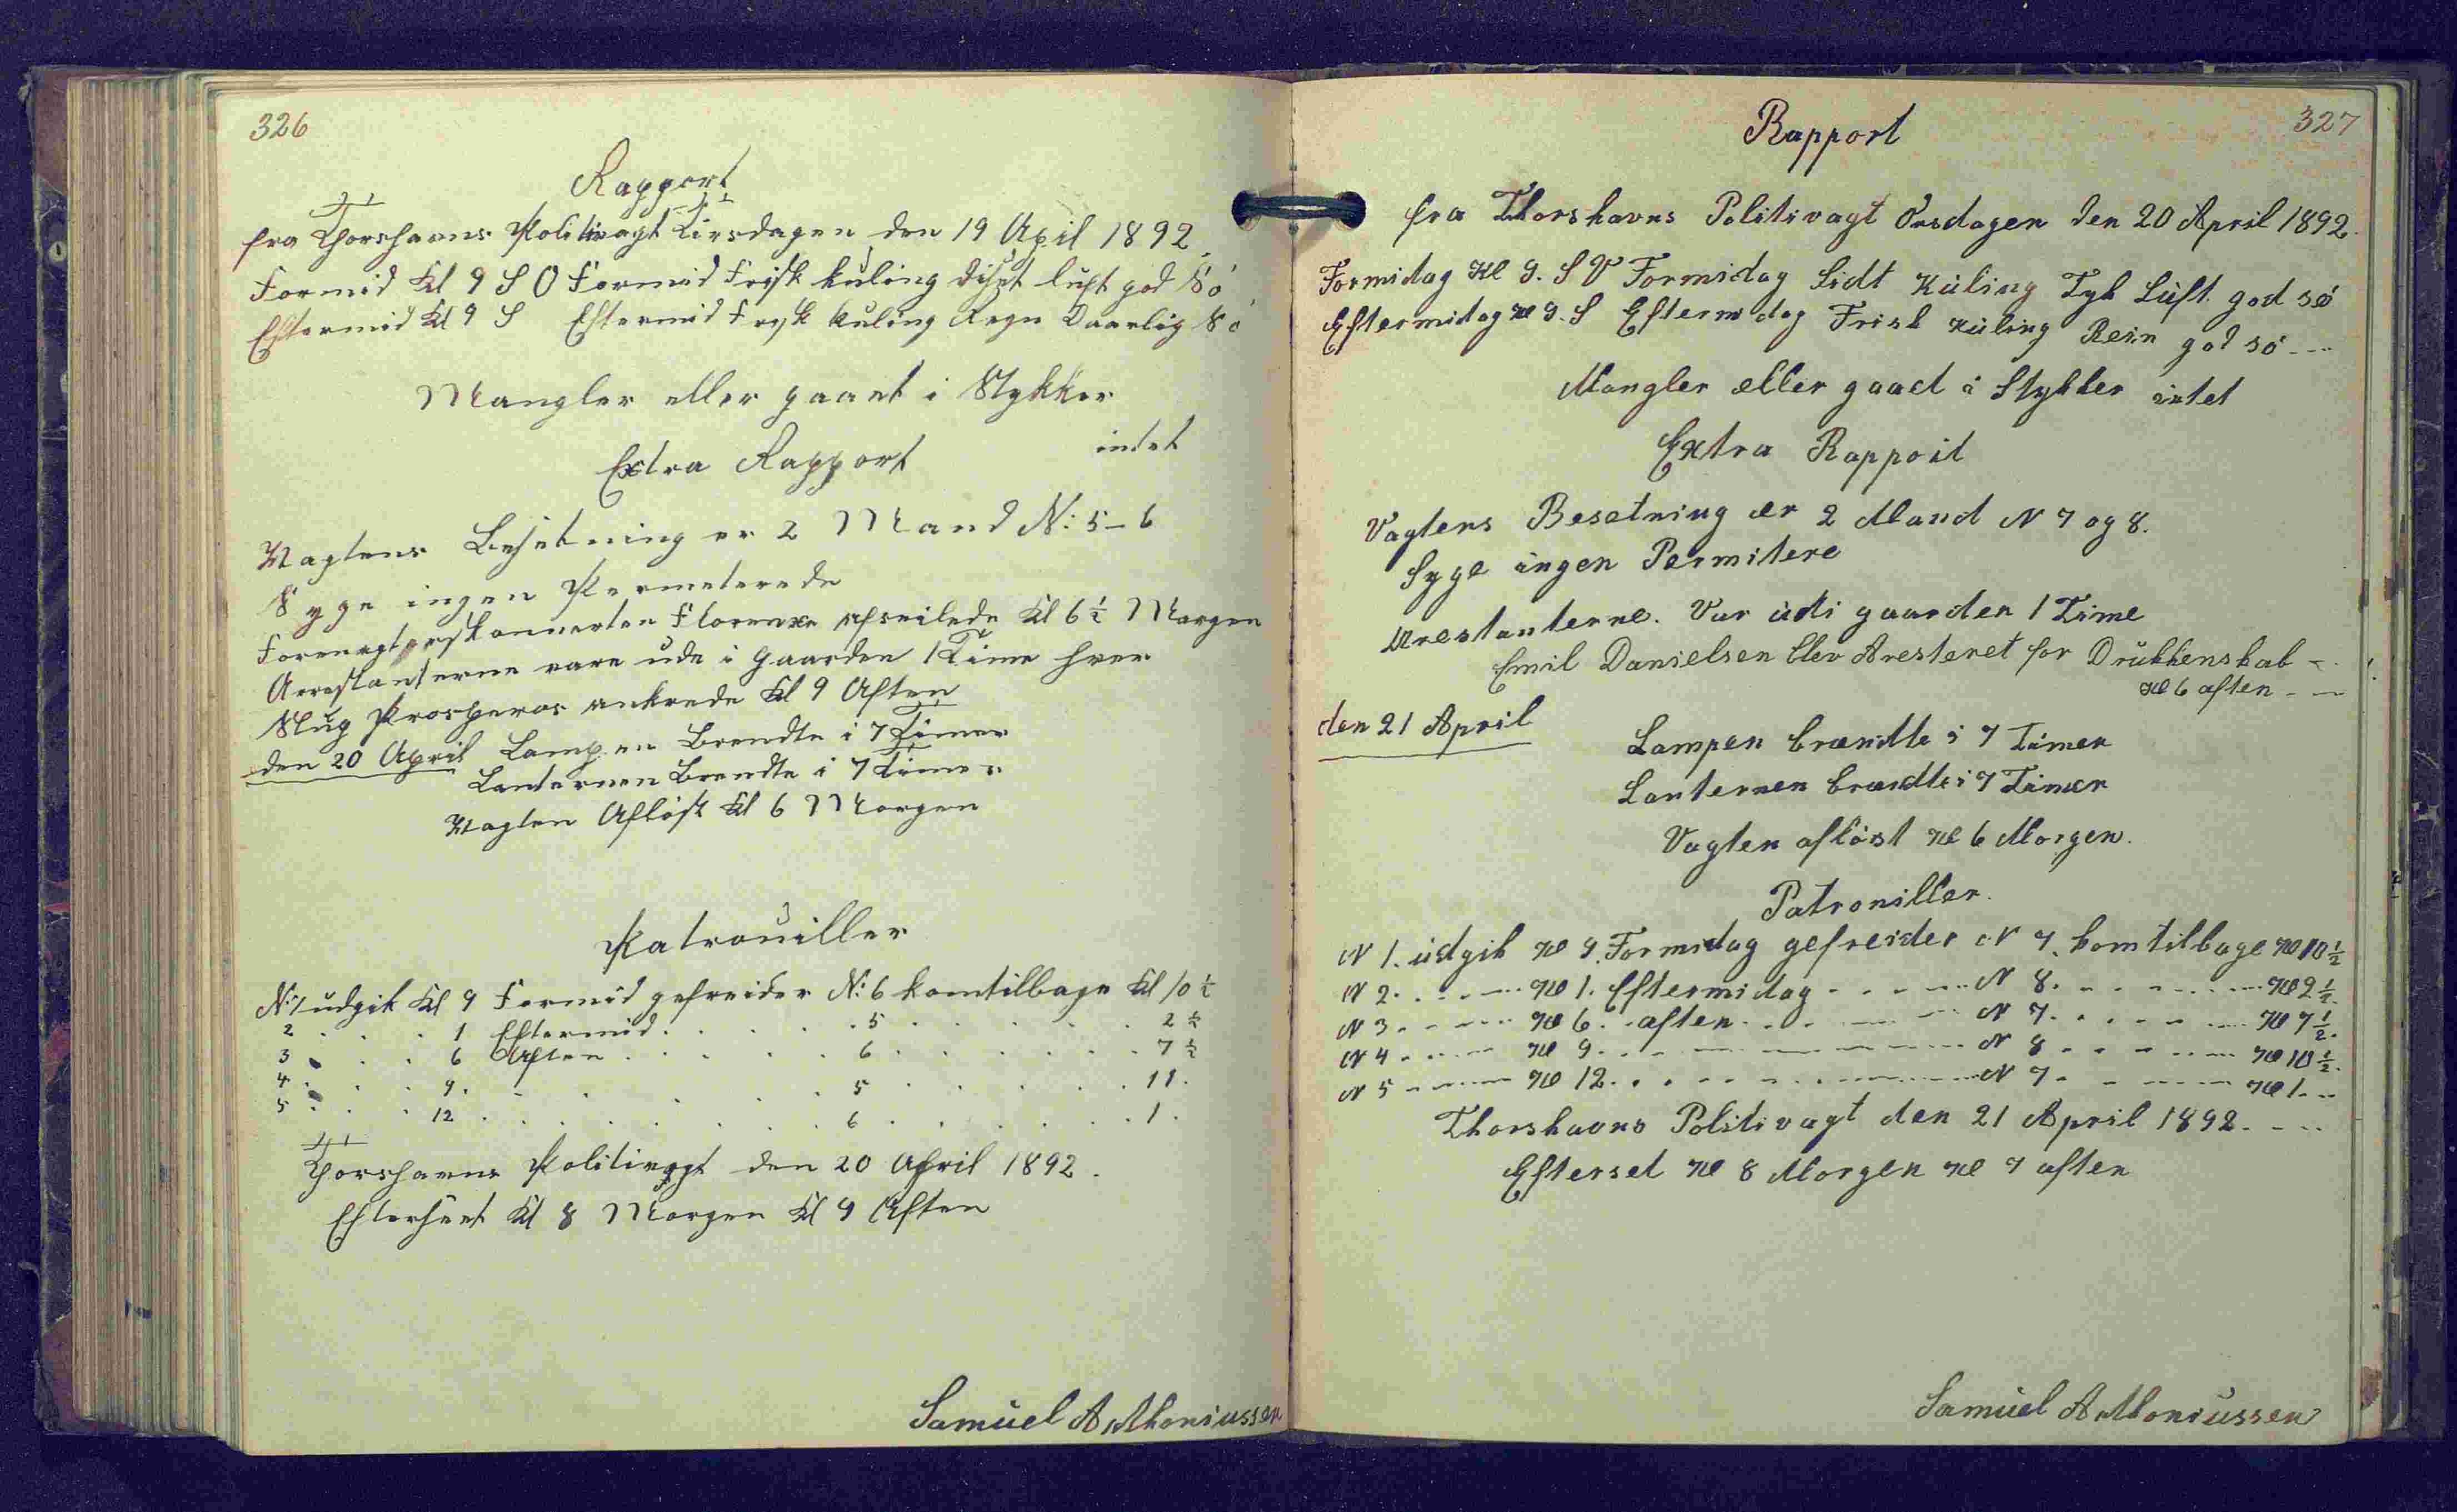 326
Rapport
fra Thorshavns Politivagt Tirsdagen den 19 April 1892.
Formid Kl 9 S O Formid Frisk kuling diset luft god Sö
Eftermid Kl 9 S Eftermid Frisk kuling Regn Daarlig Sö
Mangler eller gaaet i Stykker
intet
Extra Rapport
Vagtens Besetning er 2 Mand N: 5-6
Syge ingen Permeterede
Florenxe afseilede Kl 6½ Morgen
Arrestanterne vare ude i Gaarden 1 Time hver
Slup Prosperos ankrede Kl 9 Aften
den 20 April Lampen Brendte i 7 Timer
Lanternen Brendte i 7 Timer
Vagten Aflöst Kl 6 Morgen
Patrouiller
N: 1 udgik Kl 9 Formid gefreider N: 6 komtilbage Kl 10½
2 . . . 1 Eftermid . . . . . 5 . . . . . . 2½
3 . . . 6 Aften . . . . . 6 . . . . . . 7½
4 . . . 9 . . . . . . . 5 . . . . . . 11.
5 . . . 12 . . . . . . . 6 . . . . . . 1.
Thorshavns Politivagt den 20 April 1892.
Efterseet Kl 8 Morgen Kl 9 Aften
Samuel Anthoniussen
327
Rapport
fra Thorshavns Politivagt Onsdagen den 20 April 1892.
Formidag Kl 9. S V Formidag Lidt Kuling Tyk Luft. god sö
Eftermidag Kl 9. S Eftermidag Frisk Kuling Rein god sö ---
Mangler eller gaaet i Stykker intet
Extra Rapport
Vagtens Besetning er 2 Mand N 7 og 8.
Syge ingen Permitere
Arestanterne. Var udi gaarden 1 Time
Emil Danielsen blev Aresteret for Drukkenskab -.
Kl 6 aften - -
den 21 April
Lampen brændte i 7 Timer
Lanternen brændte i 7 Timer
Vagten aflöst Kl 6 Morgen.
Patroniller.
N 1. udgik Kl 9. Formidag gefreider N 7. komtilbage Kl 10½
N 2. . . --- Kl 1. Eftermidag - - - --- N 8. - - - --- Kl 2½.
N 3 - - --- Kl 6. . aften - - - --- N 7. . . - - --- Kl 7½.
N 4 - - --- Kl 9. . . - --- N 8 - - - --- Kl 10½.
N 5 - --- Kl 12. . . - - --- N 7 - - --- Kl 1. --
Thorshavns Politivagt den 21 April 1892. - --
Efterset Kl 8 Morgen Kl 7 aften
Samuel Anthoniussen